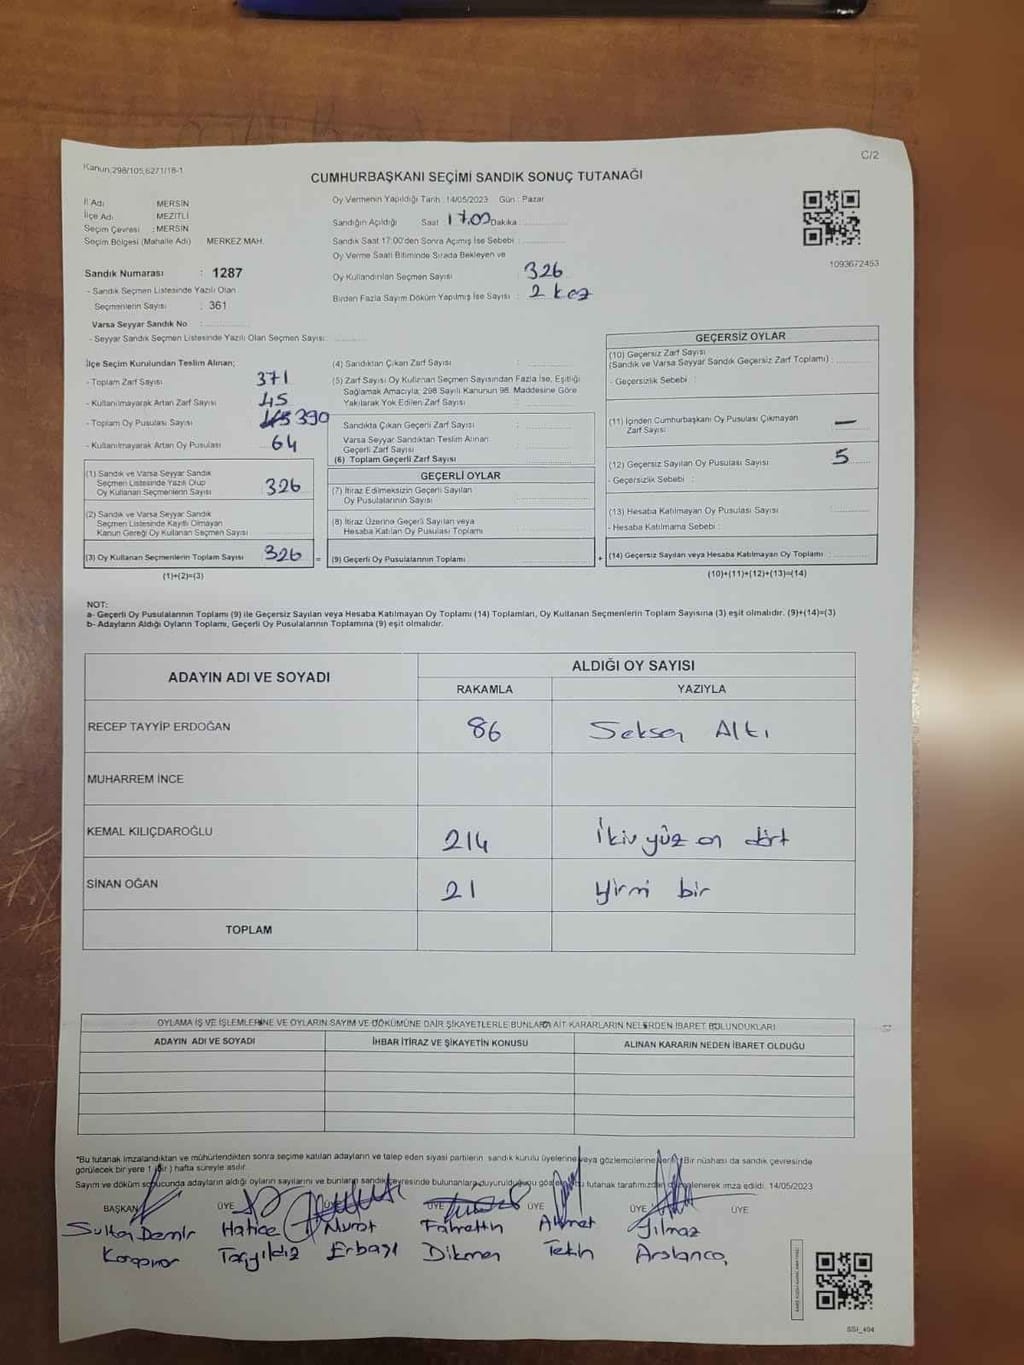 Kanun;298/105,6271/18-1
C/2
CUMHURBAŞKANI SEÇİMİ SANDIK SONUÇ TUTANAĞI
İl Adı MERSİN
İlçe Adı MEZİTLİ
Seçim Çevresi : MERSİN
Seçim Bölgesi (Mahalle Adı) MERKEZ MAH.
Oy Vermenin Yapıldığı Tarih : 14/05/2023 Gün : Pazar
Sandığın Açıldığı Saat : 17.00 Dakika
Sandık Saat 17:00'den Sonra Açılmış İse Sebebi :
Oy Verme Saati Bitiminde Sırada Bekleyen ve
Oy Kullandırılan Seçmen Sayısı : 326
Birden Fazla Sayım Döküm Yapılmış İse Sayısı : 2 kez
1093672453
Sandık Numarası : 1287
- Sandık Seçmen Listesinde Yazılı Olan
Seçmenlerin Sayısı : 361
Varsa Seyyar Sandık No :
- Seyyar Sandık Seçmen Listesinde Yazılı Olan Seçmen Sayısı:
İlçe Seçim Kurulundan Teslim Alınan;
- Toplam Zarf Sayısı 371
- Kullanılmayarak Artan Zarf Sayısı 45
- Toplam Oy Pusulası Sayısı 390
- Kullanılmayarak Artan Oy Pusulası 64
(1) Sandık ve Varsa Seyyar Sandık
Seçmen Listesinde Yazılı Olup
Oy Kullanan Seçmenlerin Sayısı 326
(2) Sandık ve Varsa Seyyar Sandık
Seçmen Listesinde Kayıtlı Olmayan
Kanun Gereği Oy Kullanan Seçmen Sayısı
(3) Oy Kullanan Seçmenlerin Toplam Sayısı 326 =
(1)+(2)=(3)
(4) Sandıktan Çıkan Zarf Sayısı :
(5) Zarf Sayısı Oy Kullanan Seçmen Sayısından Fazla İse, Eşitliği
Sağlamak Amacıyla; 298 Sayılı Kanunun 98. Maddesine Göre
Yakılarak Yok Edilen Zarf Sayısı :
Sandıkta Çıkan Geçerli Zarf Sayısı :
Varsa Seyyar Sandıktan Teslim Alınan
Geçerli Zarf Sayısı :
(6) Toplam Geçerli Zarf Sayısı :
GEÇERLİ OYLAR
(7) İtiraz Edilmeksizin Geçerli Sayılan
Oy Pusulalarının Sayısı
(8) İtiraz Üzerine Geçerli Sayılan veya
Hesaba Katılan Oy Pusulası Toplamı
(9) Geçerli Oy Pusulalarının Toplamı +
GEÇERSİZ OYLAR
(10) Geçersiz Zarf Sayısı
(Sandık ve Varsa Seyyar Sandık Geçersiz Zarf Toplamı) :
- Geçersizlik Sebebi :
(11) İçinden Cumhurbaşkanı Oy Pusulası Çıkmayan
Zarf Sayısı : —
(12) Geçersiz Sayılan Oy Pusulası Sayısı : 5
- Geçersizlik Sebebi :
(13) Hesaba Katılmayan Oy Pusulası Sayısı :
- Hesaba Katılmama Sebebi :
(14) Geçersiz Sayılan veya Hesaba Katılmayan Oy Toplamı :
(10)+(11)+(12)+(13)=(14)
NOT:
a- Geçerli Oy Pusulalarının Toplamı (9) ile Geçersiz Sayılan veya Hesaba Katılmayan Oy Toplamı (14) Toplamları, Oy Kullanan Seçmenlerin Toplam Sayısına (3) eşit olmalıdır. (9)+(14)=(3)
b- Adayların Aldığı Oyların Toplamı, Geçerli Oy Pusulalarının Toplamına (9) eşit olmalıdır.
ADAYIN ADI VE SOYADI
ALDIĞI OY SAYISI
RAKAMLA YAZIYLA
RECEP TAYYİP ERDOĞAN 86 Seksen Altı
MUHARREM İNCE
KEMAL KILIÇDAROĞLU 214 İkiyüz on dört
SİNAN OĞAN 21 yirmi bir
TOPLAM
OYLAMA İŞ VE İŞLEMLERİNE VE OYLARIN SAYIM VE DÖKÜMÜNE DAİR ŞİKAYETLERLE BUNLARA AİT KARARLARIN NELERDEN İBARET BULUNDUKLARI
ADAYIN ADI VE SOYADI İHBAR İTİRAZ VE ŞİKAYETİN KONUSU ALINAN KARARIN NEDEN İBARET OLDUĞU
*Bu tutanak imzalandıktan ve mühürlendikten sonra seçime katılan adayların ve talep eden siyasi partilerin sandık kurulu üyelerine veya gözlemcilerine verilir. Bir nüshası da sandık çevresinde
görülecek bir yere 1 (bir) hafta süreyle asılır.
Sayım ve döküm sonucunda adayların aldığı oyların sayılarını ve bunların sandık çevresinde bulunanlara duyurulduğunu gösteren bu tutanak tarafımızdan düzenlenerek imza edildi. 14/05/2023
BAŞKAN ÜYE ÜYE ÜYE ÜYE ÜYE ÜYE
Sultan Demir Hatice Murat Fahrettin Ahmet Yılmaz
Taşyıldız Erbaşı Dikmen Tekin
SSI_404